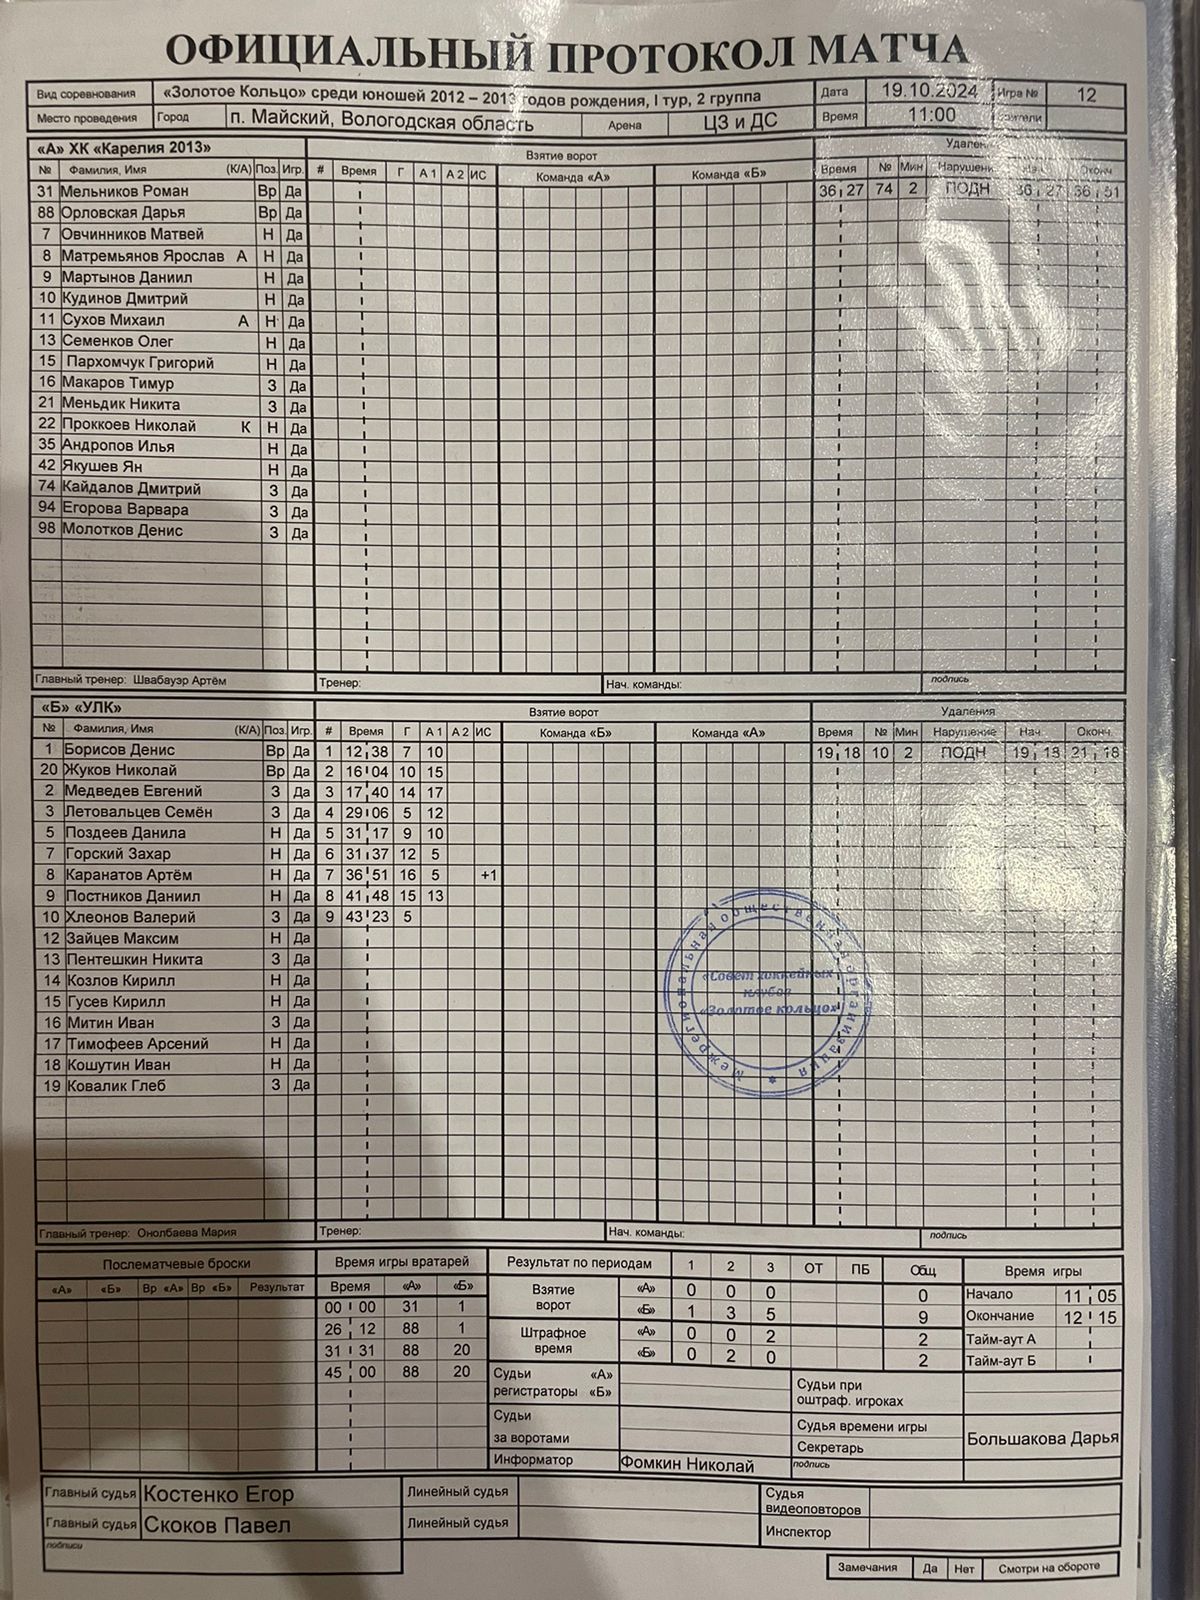 ОФИЦИАЛЬНЫЙ ПРОТОКОЛ МАТЧА
Вид соревнования «Золотое Кольцо» среди юношей 2012 – 2013 годов рождения, I тур, 2 группа Дата 19.10.2024 Игра № 12
Место проведения Город п. Майский, Вологодская область Арена ЦЗ и ДС Время 11:00
«А» ХК «Карелия 2013» Взятие ворот
№ Фамилия, Имя (К/А) Поз. Игр. # Время Г А 1 А 2 ИС Команда «А» Команда «Б» Время № Мин
31 Мельников Роман Вр Да 36 27 74 2 ПОДН 36 27 36 51
88 Орловская Дарья Вр Да
7 Овчинников Матвей Н Да
8 Матремьянов Ярослав А Н Да
9 Мартынов Даниил Н Да
10 Кудинов Дмитрий Н Да
11 Сухов Михаил А Н Да
13 Семенков Олег Н Да
15 Пархомчук Григорий Н Да
16 Макаров Тимур З Да
21 Меньдик Никита З Да
22 Проккоев Николай К Н Да
35 Андропов Илья Н Да
42 Якушев Ян Н Да
74 Кайдалов Дмитрий З Да
94 Егорова Варвара З Да
98 Молотков Денис З Да
Главный тренер: Швабауэр Артём Тренер: Нач. команды: подпись
«Б» «УЛК» Взятие ворот Удаления
№ Фамилия, Имя (К/А) Поз. Игр. # Время Г А 1 А 2 ИС Команда «Б» Команда «А» Время № Мин Нарушение Нач. Оконч.
1 Борисов Денис Вр Да 1 12 38 7 10 19 18 10 2 ПОДН 19 18 21 18
20 Жуков Николай Вр Да 2 16 04 10 15
2 Медведев Евгений З Да 3 17 40 14 17
3 Летовальцев Семён З Да 4 29 06 5 12
5 Поздеев Данила Н Да 5 31 17 9 10
7 Горский Захар Н Да 6 31 37 12 5
8 Каранатов Артём Н Да 7 36 51 16 5 +1
9 Постников Даниил Н Да 8 41 48 15 13
10 Хлеонов Валерий З Да 9 43 23 5
12 Зайцев Максим Н Да
13 Пентешкин Никита З Да
14 Козлов Кирилл Н Да
15 Гусев Кирилл Н Да
16 Митин Иван З Да
17 Тимофеев Арсений Н Да
18 Кошутин Иван Н Да
19 Ковалик Глеб З Да
Межрегиональная общественная организация
«Совет хоккейных
клубов
«Золотое кольцо»
Главный тренер: Онолбаева Мария Тренер: Нач. команды: подпись
Послематчевые броски Время игры вратарей Результат по периодам 1 2 3 ОТ ПБ Общ Время игры
«А» «Б» Вр «А» Вр «Б» Результат Время «А» «Б» Взятие ворот «А» 0 0 0 0 Начало 11 05
00 00 31 1 «Б» 1 3 5 9 Окончание 12 15
26 12 88 1 Штрафное время «А» 0 0 2 2 Тайм-аут А
31 31 88 20 «Б» 0 2 0 2 Тайм-аут Б
45 00 88 20 Судьи «А» Судьи при
регистраторы «Б» оштраф. игроках
Судьи Судья времени игры
за воротами Секретарь Большакова Дарья
Информатор Фомкин Николай подпись
Главный судья Костенко Егор Линейный судья Судья видеоповторов
Главный судья Скоков Павел Линейный судья Инспектор
подписи
Замечания Да Нет Смотри на обороте